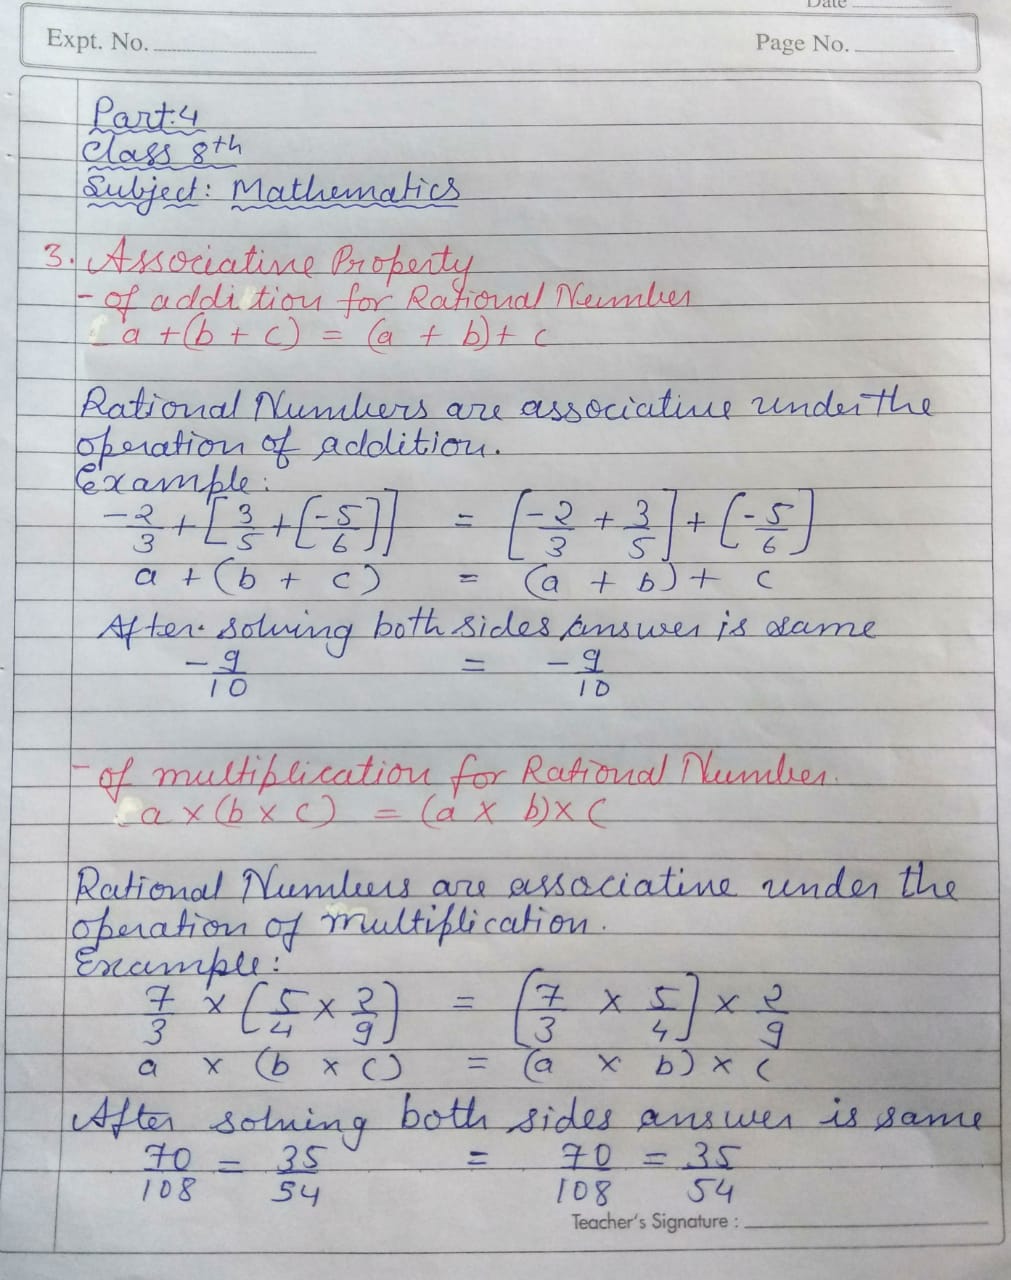 Date
Expt. No.
Page No.
Part:4
Class 8th
Subject: Mathematics
3. Associative Property
- of addition for Rational Number
a + (b + c) = (a + b) + c
Rational Numbers are associative under the
operation of addition.
Example:
-2/3 + [3/5 + [-5/6]] = [-2/3 + 3/5] + [-5/6]
a + (b + c) = (a + b) + c
After solving both sides answer is same
-9/10 = -9/10
- of multiplication for Rational Number.
a × (b × c) = (a × b) × c
Rational Numbers are associative under the
operation of multiplication.
Example:
7/3 × [5/4 × 2/9] = [7/3 × 5/4] × 2/9
a × (b × c) = (a × b) × c
After solving both sides answer is same
70/108 = 35/54 = 70/108 = 35/54
Teacher's Signature :